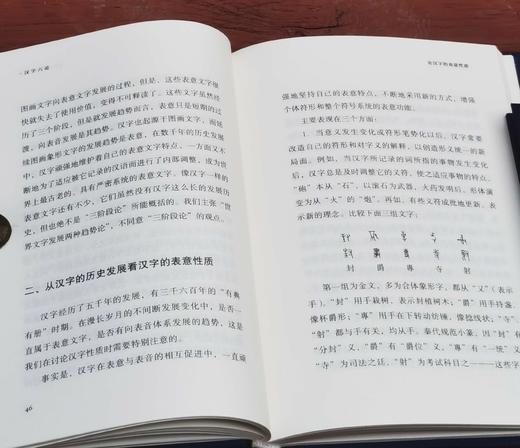 汉字六论
图画文字向表意文字发展的过程，但是，这些表意文字很
快就失去了使用价值，变得不可释读了。这些文字虽然经
历了三个阶段，但是就发展趋势而言，表意只是短期的过
渡，向表音发展是其趋势。汉字也起源于图画文字，而延
续图画象形文字的发展趋势是表意，在数千年的历史发展
中，汉字顽强地维护着自己的表意文字特点，一方面又不
断地为了适应被它记录的汉语而进行了内部调整，成为世
界上最古老的、具有严密系统的表意文字。像汉字一样的
表意文字还有不少，它们虽然没有汉字这么长的发展历
史，但也绝不是“三阶段论”所能概括的。我们主张“世
界文字发展两种趋势论”，不同意“三阶段论”的观点。
二、从汉字的历史发展看汉字的表意性质
汉字经历了五千年的发展，有三千六百年的“有典
有册”时期。在漫长岁月的不间断发展变化中，是否一
直属于表意文字，是否有向表音体系发展的趋势，这是
我们在讨论汉字性质时需要特别注意的。
事实是，汉字在表意与表音的相互促进中，一直顽
46
论汉字的表意性质
强地坚持自己的表意特点，不断地采用新的方式，增强
个体符形和整个符号系统的表意功能。
主要表现在三个方面：
1. 当意义发生变化或符形笔势化以后，汉字需要
改造自己的符形和对字义的解释，以创造形义统一的新
局面。例如，当汉字所记录的词所指的事物发生变化
后，汉字总是及时调整它的义符，使之适应事物的特点。
“砲”本从“石”，以滚石为武器，火药发明后，形体演
变为从“火”的“炮”。再如，有些义符成批地更新，表
示新的理念。比较下面三组文字：
封 爵 尃 寺 射
第一组为金文，多为合体象形字，都从“又”（表示
手）。“封”用手栽树，表示封植树木；“爵”用手持盏，
像杯爵形；“尃”用手在下转动纺锤，像捻线状；“寺”
“射”都与手有关，均从手。秦代规范小篆，因为“封”有
“分封”义，“爵”有“爵位”义，“尃”有“一统”义，
“寺”为司法之廷，“射”为考试科目之一——这些字